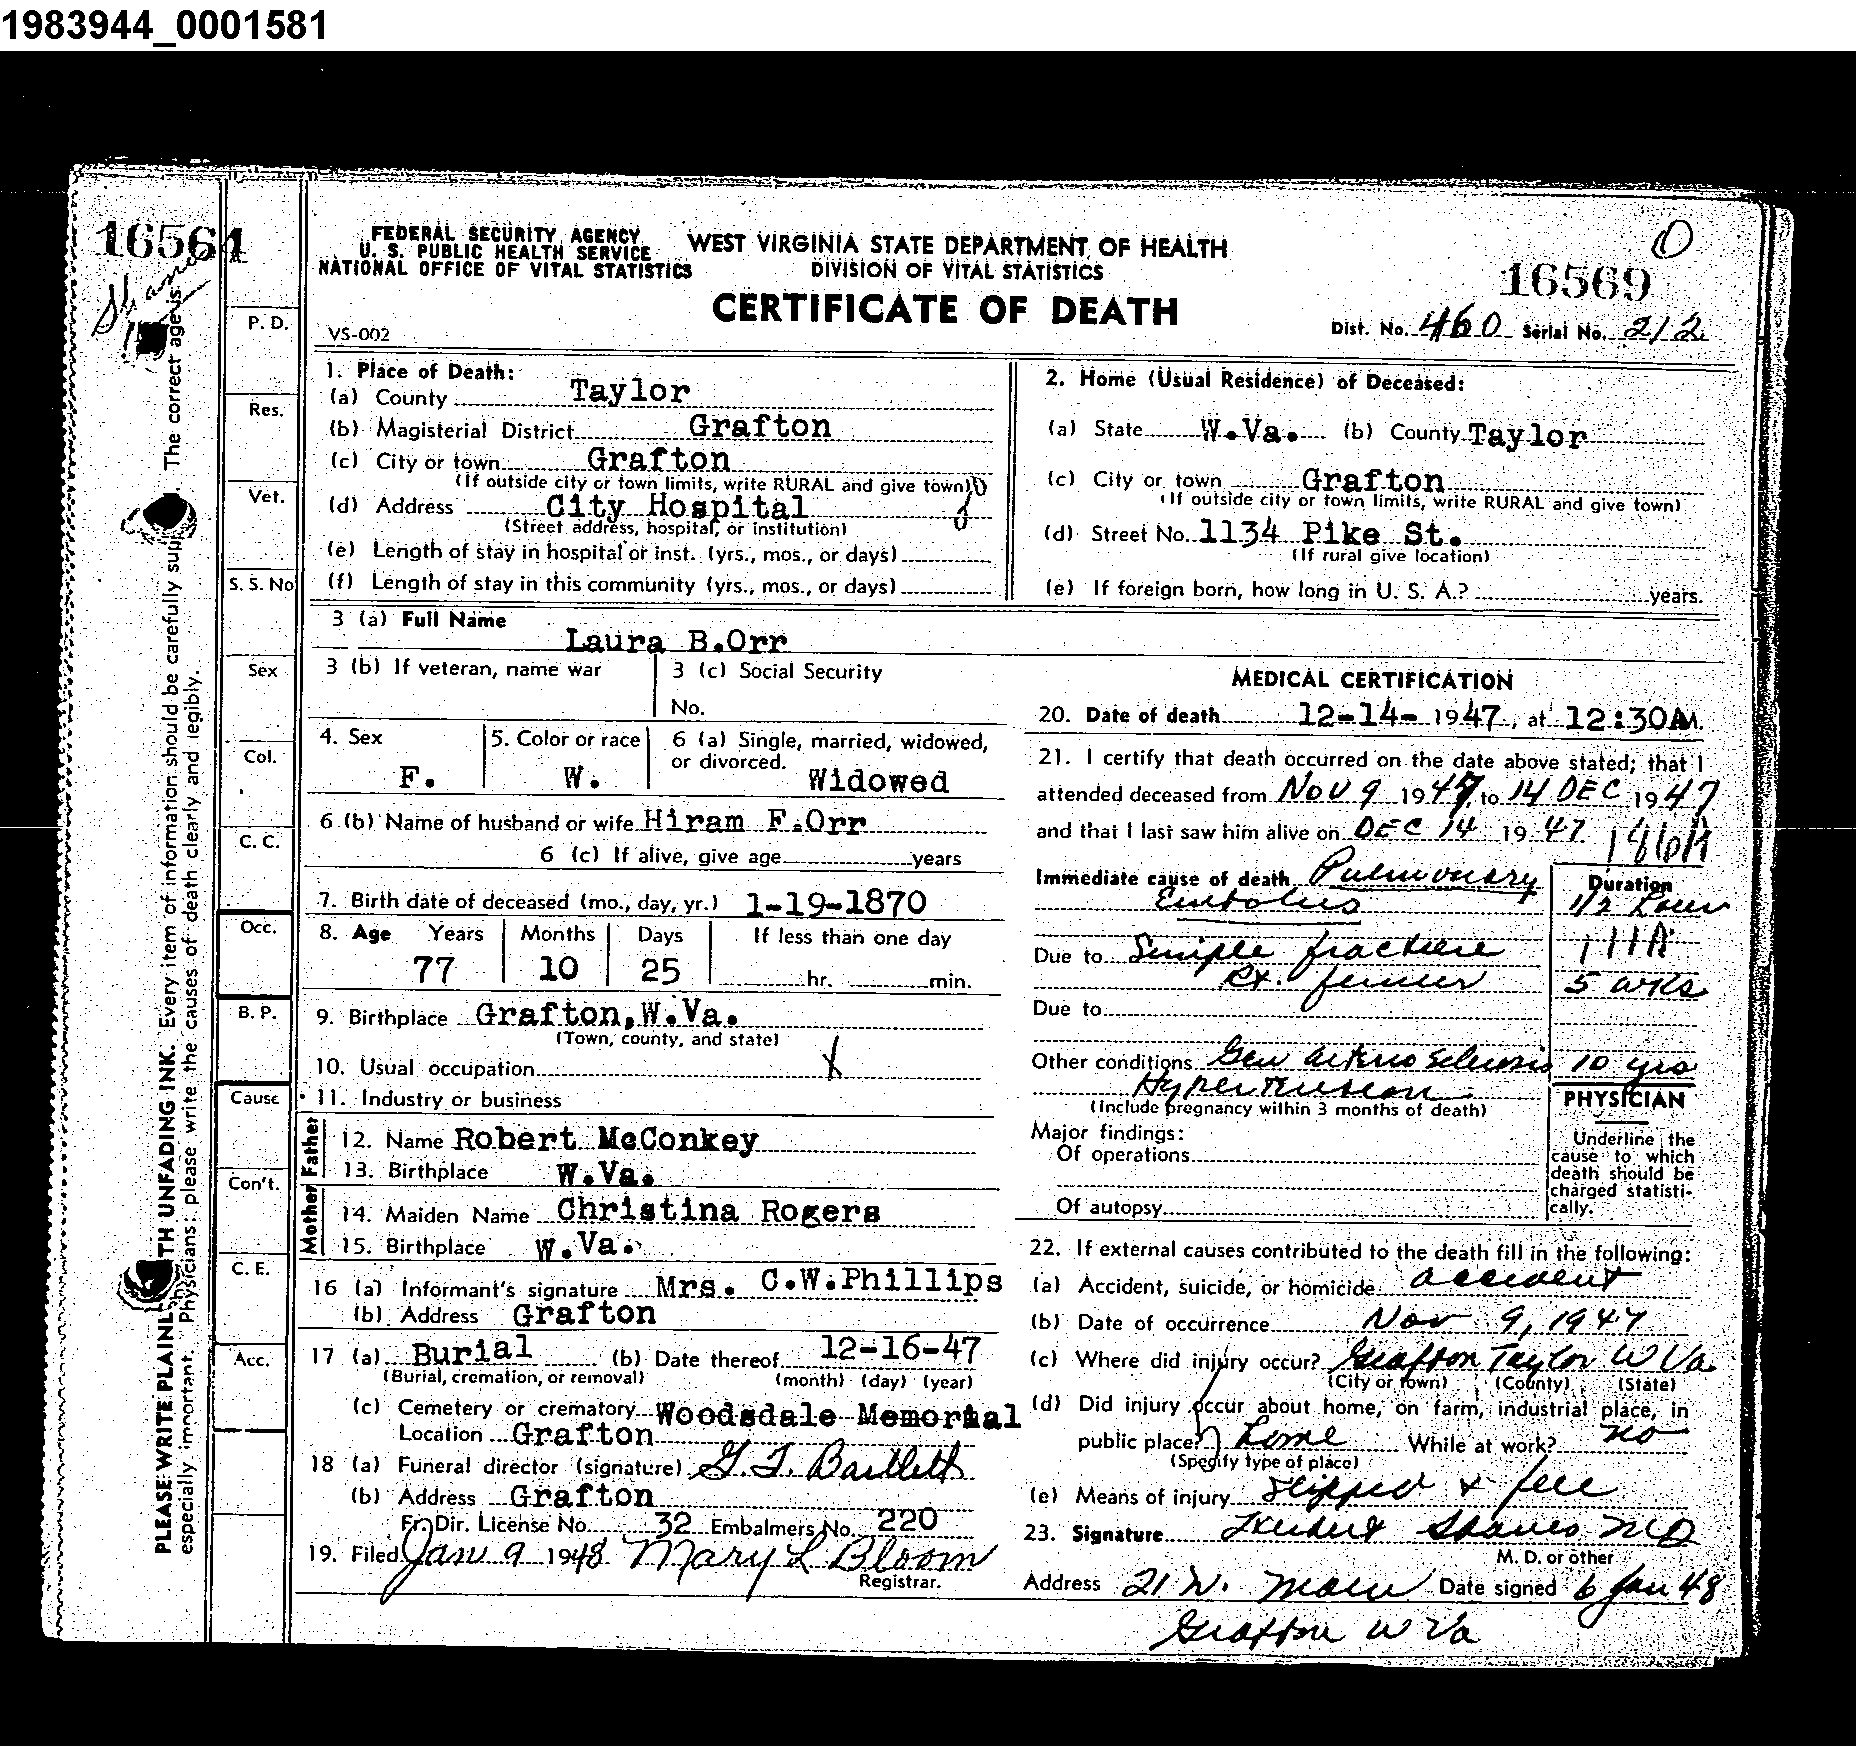 1983944_0001581
16564
FEDERAL SECURITY AGENCY
U. S. PUBLIC HEALTH SERVICE
NATIONAL OFFICE OF VITAL STATISTICS
WEST VIRGINIA STATE DEPARTMENT OF HEALTH
DIVISION OF VITAL STATISTICS
CERTIFICATE OF DEATH
16569
Dist. No. 460 Serial No. 212
VS-002
1. Place of Death:
(a) County Taylor
(b) Magisterial District Grafton
(c) City or town Grafton
(If outside city or town limits, write RURAL and give town)
(d) Address City Hospital
(Street address, hospital, or institution)
(e) Length of stay in hospital or inst. (yrs., mos., or days)
(f) Length of stay in this community (yrs., mos., or days)
2. Home (Usual Residence) of Deceased:
(a) State W.Va. (b) County Taylor
(c) City or town Grafton
(If outside city or town limits, write RURAL and give town)
(d) Street No. 1134 Pike St.
(If rural give location)
(e) If foreign born, how long in U. S. A.? years.
3 (a) Full Name
Laura B.Orr
3 (b) If veteran, name war
3 (c) Social Security
No.
4. Sex
F.
5. Color or race
W.
6 (a) Single, married, widowed,
or divorced.
Widowed
6 (b) Name of husband or wife Hiram F.Orr
6 (c) If alive, give age years
7. Birth date of deceased (mo., day, yr.) 1-19-1870
8. Age Years Months Days If less than one day
77 10 25 hr. min.
9. Birthplace Grafton,W.Va.
(Town, county, and state)
10. Usual occupation X
11. Industry or business
Father
12. Name Robert McConkey
13. Birthplace W.Va.
Mother
14. Maiden Name Christina Rogers
15. Birthplace W.Va.
16 (a) Informant's signature Mrs. C.W.Phillips
(b) Address Grafton
17 (a) Burial (b) Date thereof 12-16-47
(Burial, cremation, or removal) (month) (day) (year)
(c) Cemetery or crematory Woodsdale Memorial
Location Grafton
18 (a) Funeral director (signature) G. T. Bartlett
(b) Address Grafton
Fr. Dir. License No. 32 Embalmers No. 220
19. Filed Jan 9 1948 Mary L Bloom
Registrar.
MEDICAL CERTIFICATION
20. Date of death 12-14- 1947, at 12:30AM.
21. I certify that death occurred on the date above stated; that I
attended deceased from Nov 9 1947 to 14 DEC 1947
and that I last saw him alive on DEC 14 1947
Immediate cause of death Pulmonary
Embolus
Duration
1/2 hour
Due to Simple fracture
Rt. femur
5 wks
Due to
Other conditions Gen arterio sclerosis 10 yrs
Hypertension
(Include pregnancy within 3 months of death)
Major findings:
Of operations
Of autopsy
PHYSICIAN
Underline the
cause to which
death should be
charged statisti-
cally.
22. If external causes contributed to the death fill in the following:
(a) Accident, suicide, or homicide accident
(b) Date of occurrence Nov 9, 1947
(c) Where did injury occur? Grafton Taylor W Va
(City or town) (County) (State)
(d) Did injury occur about home, on farm, industrial place, in
public place? home While at work? no
(Specify type of place)
(e) Means of injury slipped & fell
23. Signature MD
M. D. or other
Address 21 W. Main Date signed 6 Jan 48
Grafton W Va
P. D.
Res.
Vet.
S. S. No
Sex
Col.
C. C.
Occ.
B. P.
Cause
Con't.
C. E.
Acc.
PLEASE WRITE PLAINLY WITH UNFADING INK. Every item of information should be carefully supp. The correct age is
especially important. Physicians: please write the causes of death clearly and legibly.